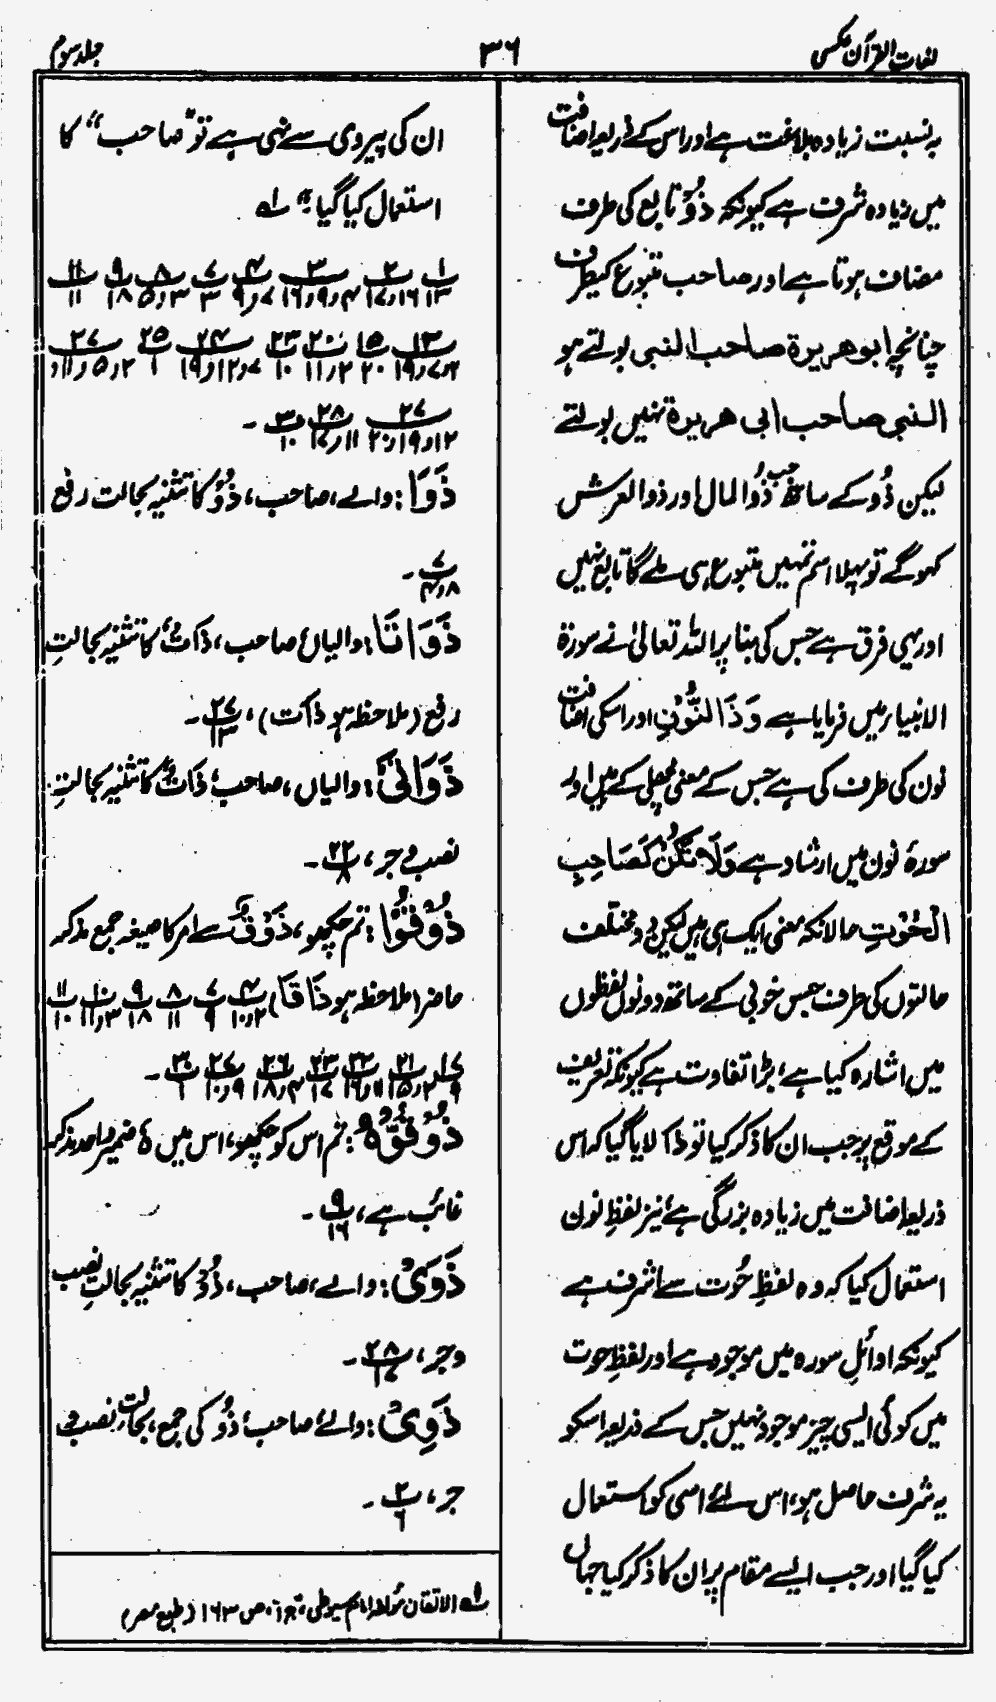 لغات القرآن عکسی
۳۶
جلد سوم
بہ نسبت زیادہ بلاغت ہے اور اس کے ذریعہ اضافت
میں زیادہ شرف ہے کیونکہ ذُوْ تابع کی طرف
مضاف ہوتا ہے اور صاحب متبوع کیطرف
چنانچہ ابو ھریرۃ صاحب النبی بولتے ہو
النبی صاحب ابی ھریرۃ نہیں بولتے
لیکن ذُو کے ساتھ جب ذُو المال اور ذو العرش
کہو گے تو پہلا اسم تمہیں متبوع ہی ملے گا تابع نہیں
اور یہی فرق ہے جس کی بنا پر اللہ تعالیٰ نے سورۃ
الانبیاء میں فرمایا ہے وَذَا النُّوْنِ اور اسکی اضافت
نون کی طرف کی ہے جس کے معنی مچھلی کے ہیں اور
سورۂ نون میں ارشاد ہے وَلَا تَکُنْ کَصَاحِبِ
الْحُوْتِ حالانکہ معنی ایک ہی ہیں لیکن دو مختلف
حالتوں کی طرف جس خوبی کے ساتھ دونوں لفظوں
میں اشارہ کیا ہے، بڑا تفاوت ہے کیونکہ تعریف
کے موقع پر جب ان کا ذکر کیا تو ذا لایا گیا کہ اس
ذریعہ اضافت میں زیادہ بزرگی ہے نیز لفظِ نون
استعمال کیا کہ وہ لفظِ حُوت سے اشرف ہے
کیونکہ اوائلِ سورہ میں موجود ہے اور لفظِ حوت
میں کوئی ایسی چیز موجود نہیں جس کے ذریعہ اسکو
یہ شرف حاصل ہو، اس لئے اسی کو استعمال
کیا گیا اور جب ایسے مقام پر ان کا ذکر کیا جہاں
ان کی پیروی سے نہی ہے تو "صاحب" کا
استعمال کیا گیا؛ لہ
۱/۱۳ ۲/۱۶و۱۷ ۳/۴و۹و۱۶ ۴/۷و۹ ۷/۳ ۸/۳و۵ ۹/۱۸ ۱۱/۱۱
۱۳/۲و۷و۱۹ ۱۵/۲۰ ۲۰/۲و۱۱ ۲۳/۱۰ ۲۴/۷و۱۲و۱۹ ۲۵/۱ ۲۷/۲و۵و۱۱و
۲۷/۱۲و۱۹و۲۰ ۲۸/۱۱و۱۷ ۳۰/۱۰ ۔
ذَوَا: والے، صاحب، ذُوْ کا تثنیہ بحالت رفع
۷/۸و۴ ۔
ذَوَاتَا: والیاں، صاحب، ذَات کا تثنیہ بحالتِ
رفع (ملاحظہ ہو ذات)، ۲۷/۱۳ ۔
ذَوَاتَیْ: والیاں، صاحب، ذَات کا تثنیہ بحالتِ
نصب و جر، ۲۲/۸ ۔
ذُوْقُوْا: تم چکھو، ذَوْقٌ سے امر کا صیغہ جمع مذکر
حاضر (ملاحظہ ہو ذَاقَا) ۴/۲و۱۰ ۷/۹ ۸/۱۱ ۹/۱۸ ۱۰/۳و۱۱ ۱۱/۱۰
۱۷/۹ ۲۱/۲و۱۵ ۲۲/۱۱و۱۶ ۲۳/۱۷ ۲۶/۴و۱۸ ۲۷/۹و۱۰ ۳۰/۱ ۔
ذُوْقُوْہُ: تم اس کو چکھو، اس میں ہٗ ضمیر واحد مذکر
غائب ہے، ۹/۱۶ ۔
ذَوَیْ: والے، صاحب، ذُوْ کا تثنیہ بحالتِ نصب
وجر، ۲۸/۱۷ ۔
ذَوِیْ: والے، صاحب، ذُوْ کی جمع، بحالت نصب و
جر، ۲/۶ ۔
لہ الاتقان مؤلفہ امام سیوطی، ج ۱، ص ۱۶۳ (طبع مصر)